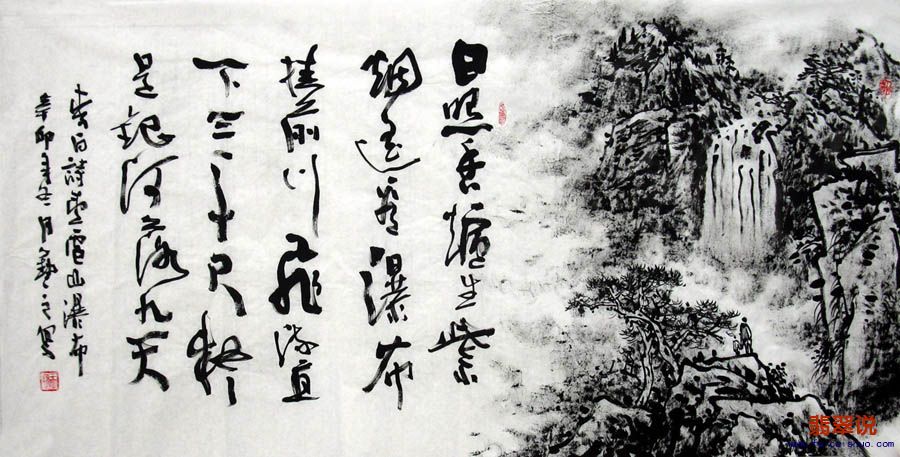 日照香爐生紫
烟遥看瀑布
挂前川飛流直
下三千尺疑
是銀河落九天
李白詩望廬山瀑布
辛卯年冬月之寫
翡翠说
www.feicuishuo.com